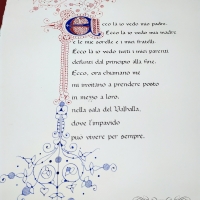 Ecco là io vedo mio padre.
Ecco là io vedo mia madre
e le mie sorelle e i miei fratelli.
Ecco là io vedo tutti i miei parenti,
defunti dal principio alla fine.
Ecco, ora chiamano me
mi invitano a prendere posto
in mezzo a loro,
nella sala del Valhalla,
dove l'impavido
può vivere per sempre.